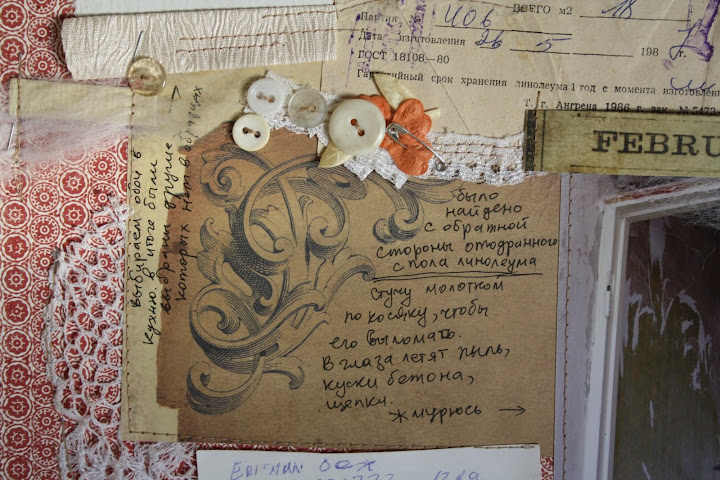 Партия, № 406 ВСЕГО м2 18
Дата изготовления 26 5 198
ГОСТ 18108—80
Гарантийный срок хранения линолеума 1 год с момента изготовлени
Т. г. Ангрена 1986 г. зак. № 5473
FEBRU
выбираем обои в
кухню. в итоге были
выбраны другие
которых нет в образцах
было
найдено
с обратной
стороны отодранного
с пола линолеума
Стучу молотком
по косяку, чтобы
его выломать.
В глаза летят пыль,
куски бетона,
щепки.
Жмурюсь →